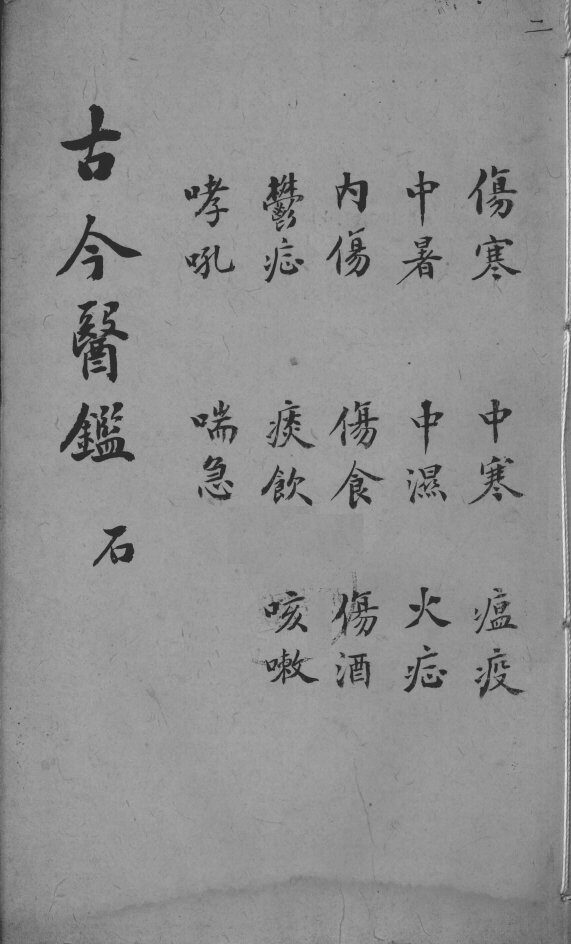 二
傷寒 中寒 瘟疫
中暑 中濕 火症
内傷 傷食 傷酒
鬱症 痰飲 咳嗽
哮吼 喘急
古今醫鑑 石